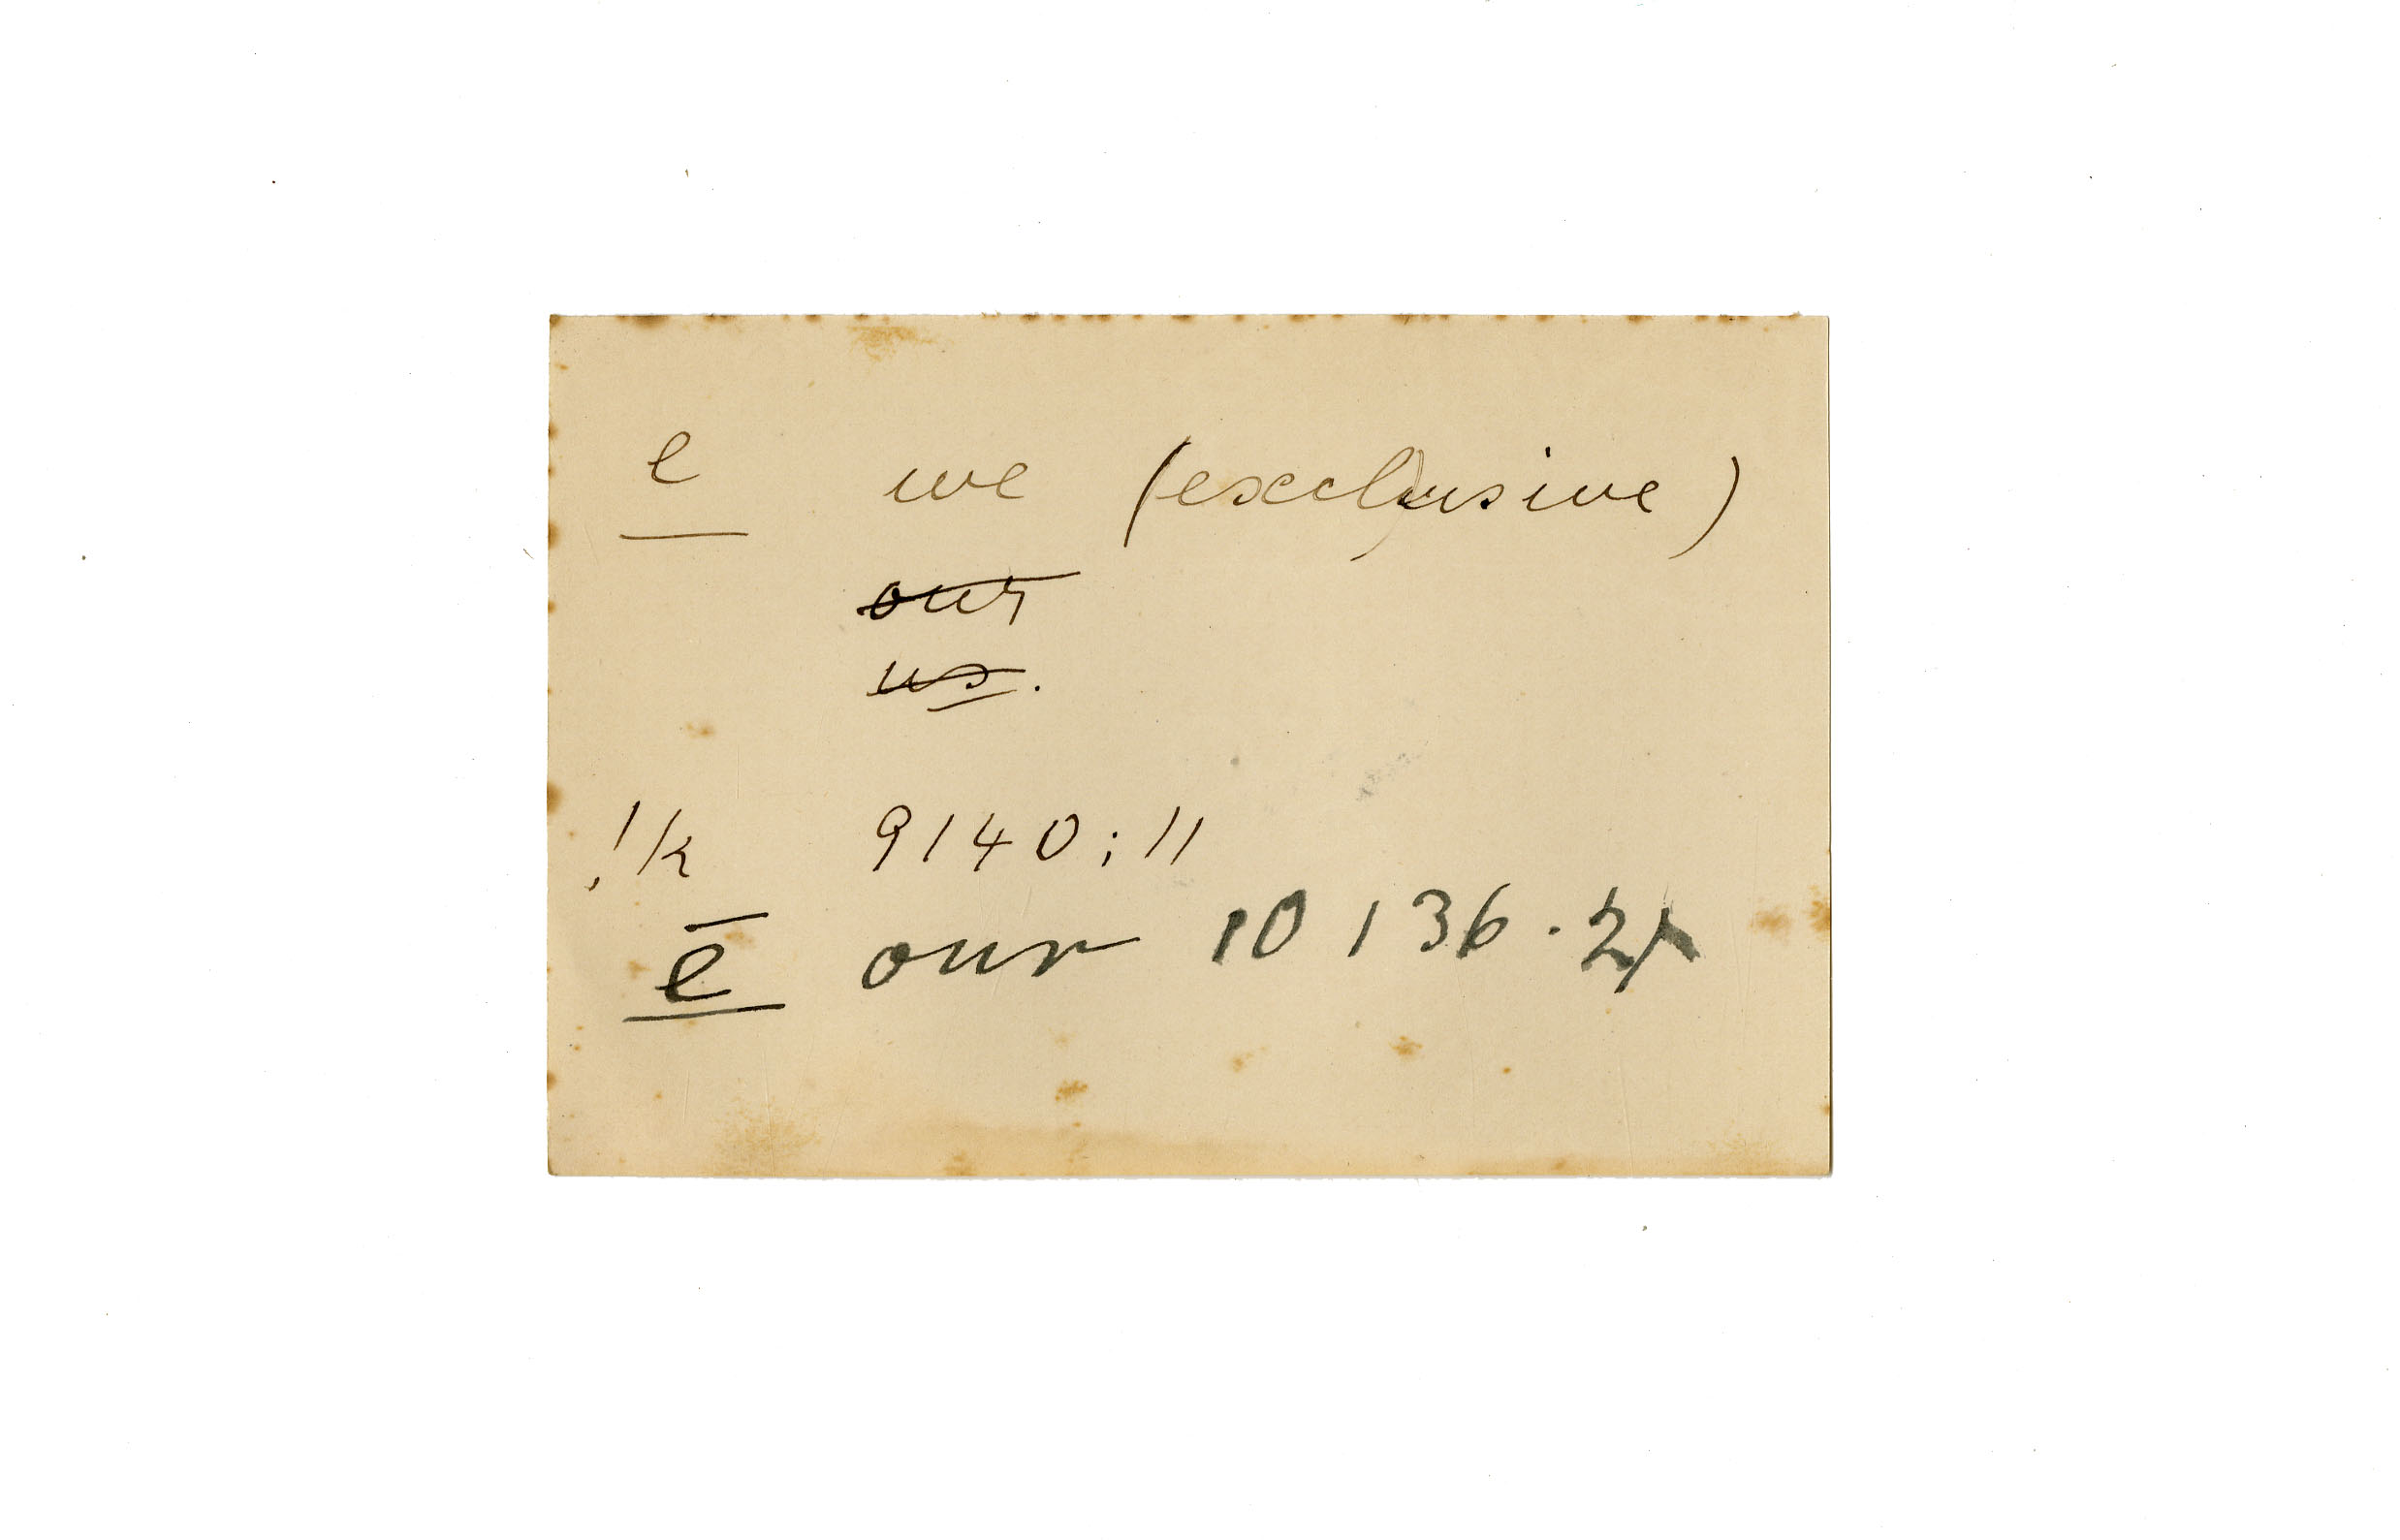 e we (exclusive)
our
us.
!k 9140;11
ē our 10 136.